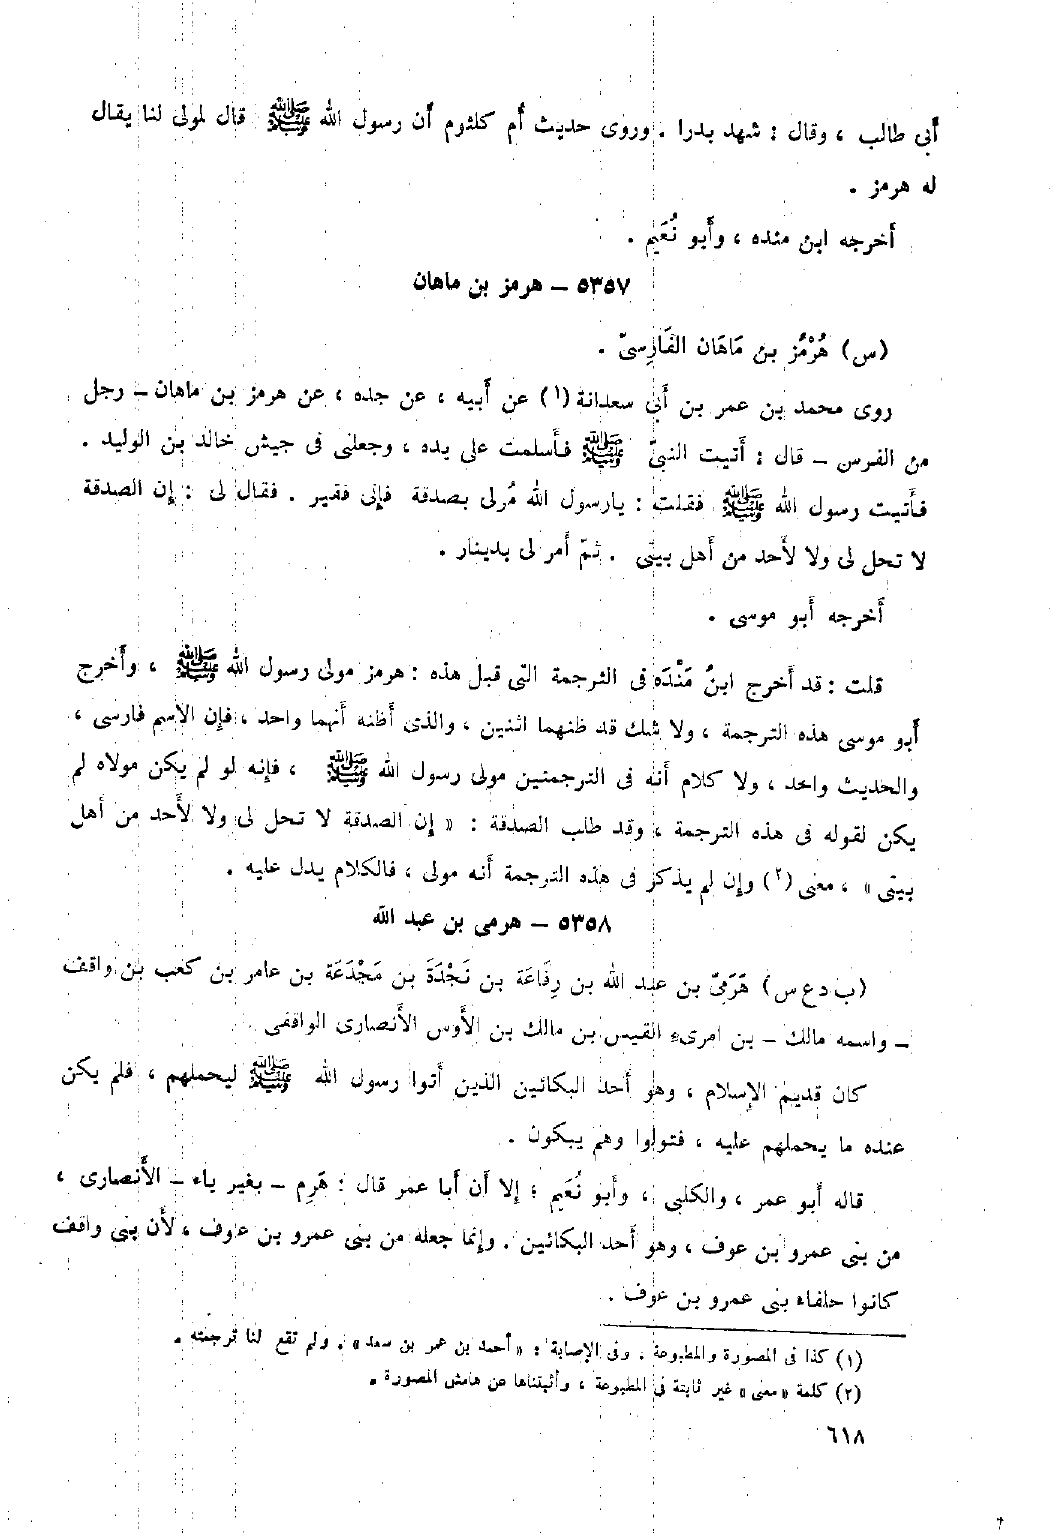 أبى طالب ، وقال : شهد بدرا . وروى حديث أم كلثوم أن رسول الله ﷺ قال لمولى لنا يقال
له هرمز .
أخرجه ابن منده ، وأبو نُعَيم .
٥٣٥٧ – هرمز بن ماهان
(س) هُرْمُز بن مَاهَان الفَارِسىّ .
روى محمد بن عمر بن أبى سعدانة (١) عن أبيه ، عن جده ، عن هرمز بن ماهان – رجل
من الفرس – قال : أتيت النبىّ ﷺ فأسلمت على يده ، وجعلنى فى جيش خالد بن الوليد .
فأتيت رسول الله ﷺ فقلت : يارسول الله مُرلى بصدقة فإنى فقير . فقال لى : إن الصدقة
لا تحل لى ولا لأحد من أهل بيتى . ثمّ أمر لى بدينار .
أخرجه أبو موسى .
قلت : قد أخرج ابنُ مَنْدَه فى الترجمة التى قبل هذه : هرمز مولى رسول الله ﷺ ، وأخرج
أبو موسى هذه الترجمة ، ولا شك قد ظنهما اثنين ، والذى أظنه أنهما واحد ، فإن الاسم فارسى ،
والحديث واحد ، ولا كلام أنه فى الترجمتين مولى رسول الله ﷺ ، فإنه لو لم يكن مولاه لم
يكن لقوله فى هذه الترجمة ، وقد طلب الصدقة : « إن الصدقة لا تحل لى ولا لأحد من أهل
بيتى » ، معنى (٢) وإن لم يذكر فى هذه الترجمة أنه مولى ، فالكلام يدل عليه .
٥٣٥٨ – هرمى بن عبد الله
(ب د ع س) هَرَمِىّ بن عبد الله بن رِفَاعَة بن نَجْدَةَ بن مَجْدَعَة بن عامر بن كعب بن واقف
– واسمه مالك – بن امرىء القيس بن مالك بن الأوس الأنصارى الواقفى .
كان قديم الإسلام ، وهو أحد البكائين الذين أتوا رسول الله ﷺ ليحملهم ، فلم يكن
عنده ما يحملهم عليه ، فتولوا وهم يبكون .
قاله أبو عمر ، والكلبى ، وأبو نُعَيم ؛ إلا أن أبا عمر قال : هَرِم – بغير ياء – الأنصارى ،
من بنى عمرو بن عوف ، وهو أحد البكائين . وإنما جعله من بنى عمرو بن عوف ، لأن بنى واقف
كانوا حلفاء بنى عمرو بن عوف .
(١) كذا فى المصورة والمطبوعة . وفى الإصابة : « أحمد بن عمر بن سعد » . ولم تقع لنا ترجمته .
(٢) كلمة « معنى » غير ثابتة فى المطبوعة ، وأثبتناها عن هامش المصورة .
٦١٨